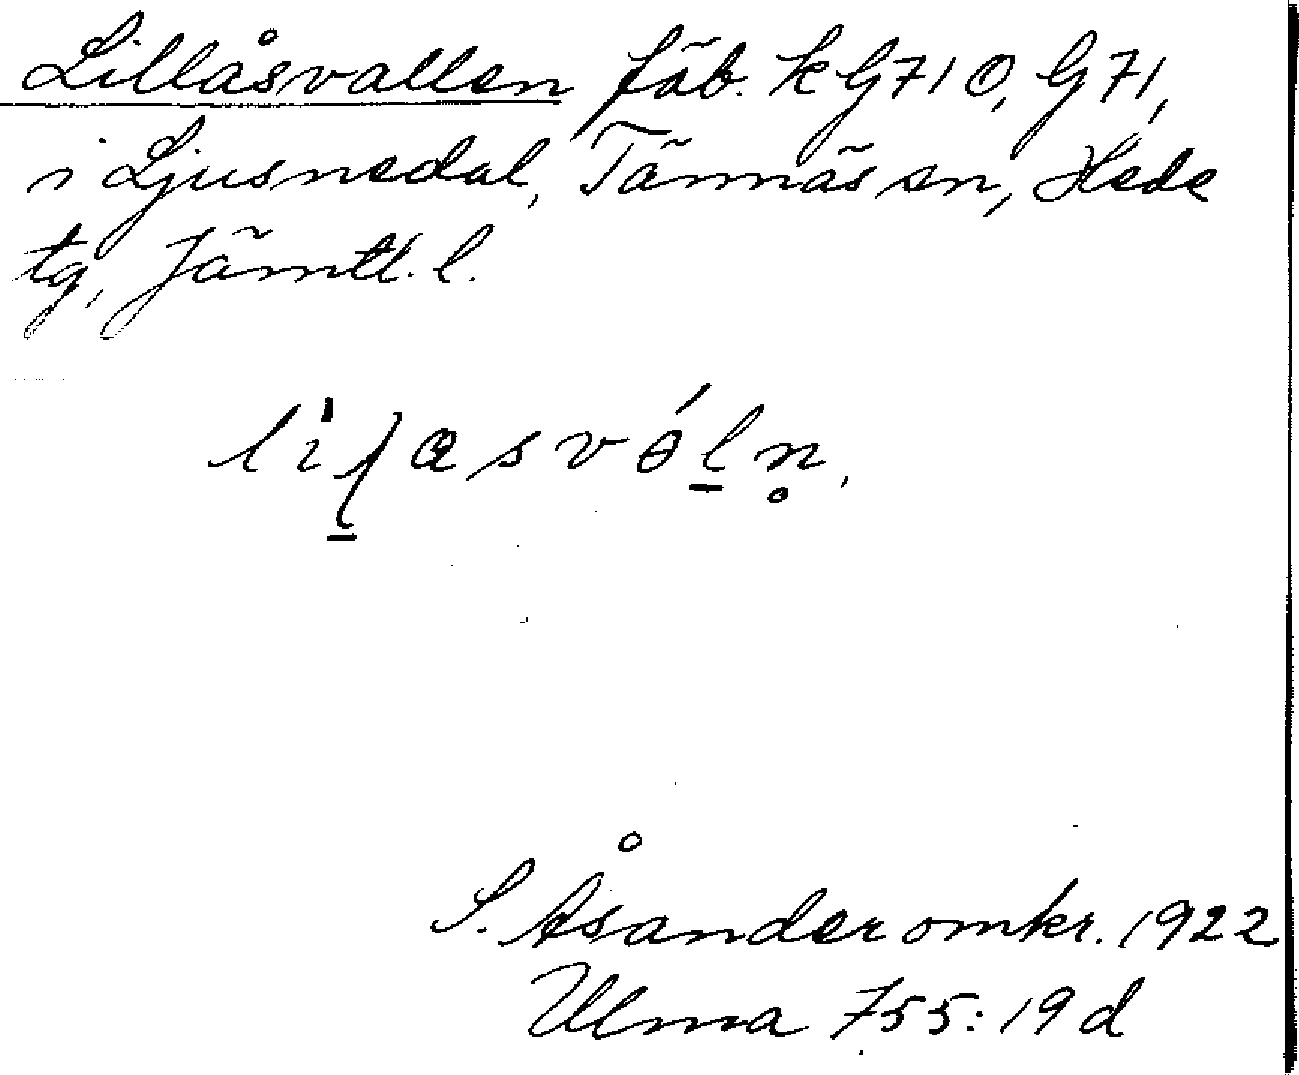 Lillåsvallen fäb. k G710, G71,
i Ljusnedal, Tännäs sn, Hede
tg, Jämtl. l.
S. Åsander omkr. 1922
Ulma 755:19d